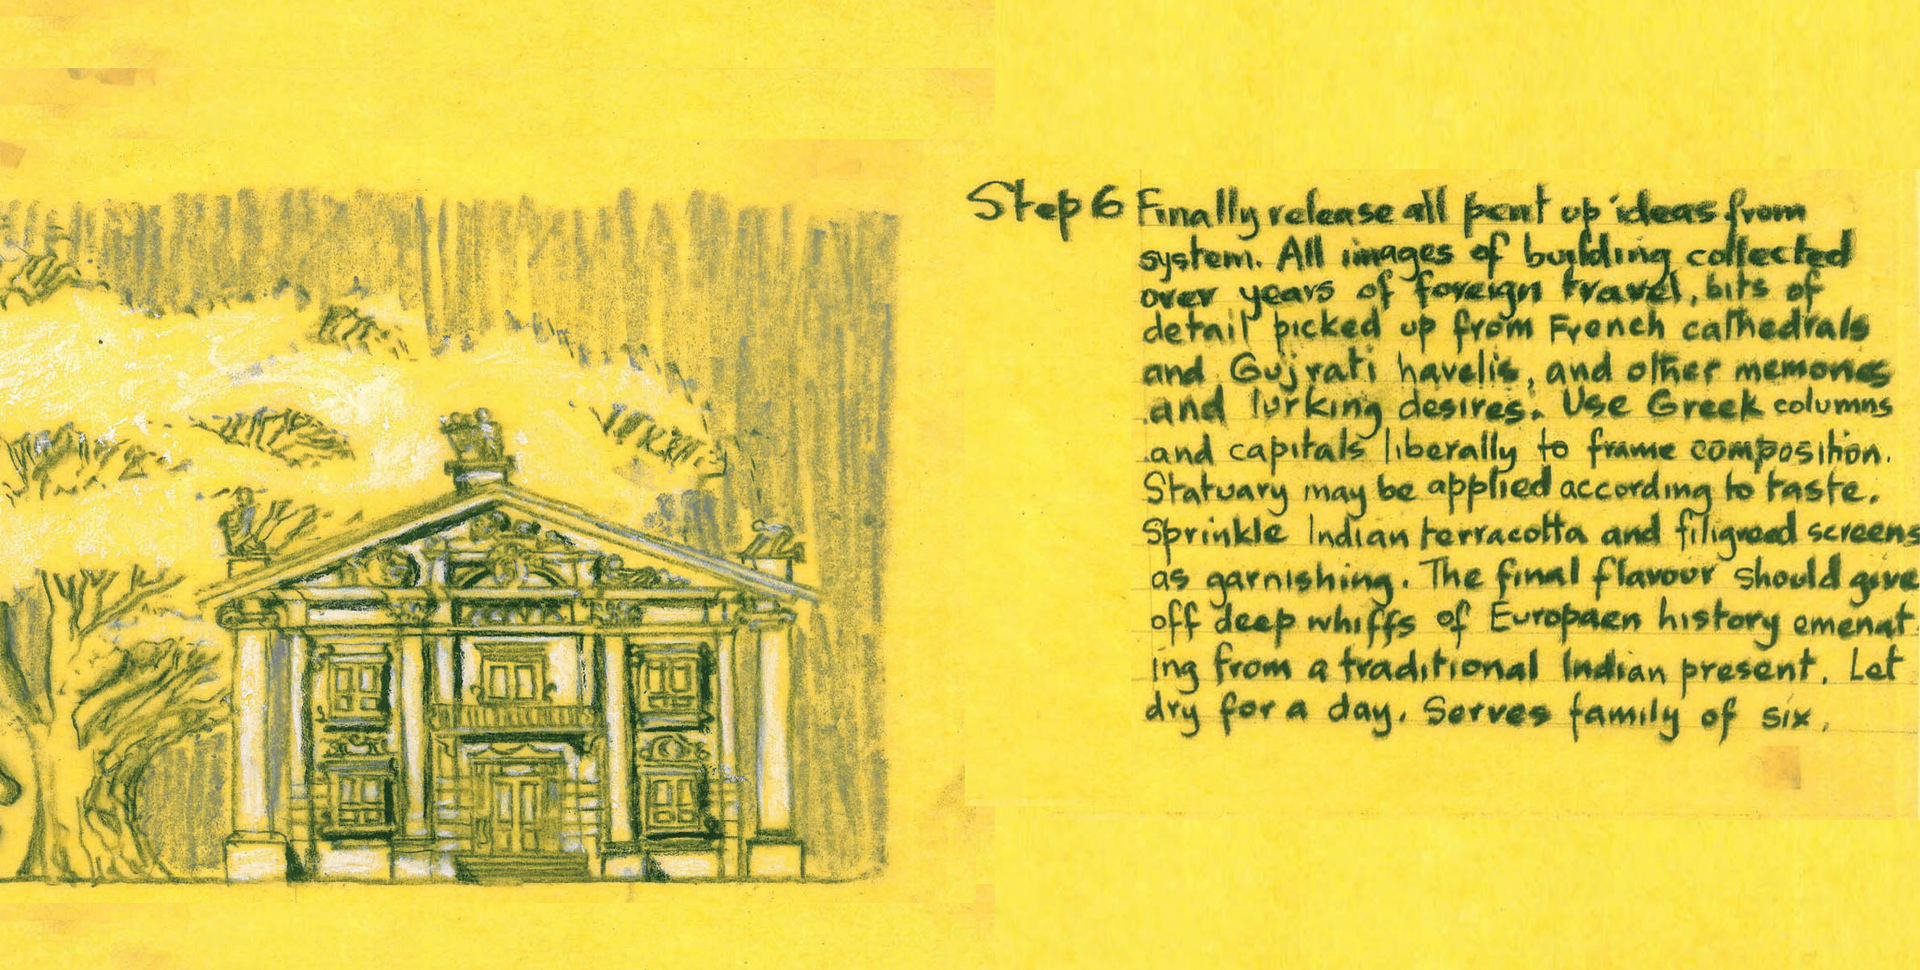 Step 6 Finally release all pent up ideas from
system. All images of building collected
over years of foreign travel, bits of
detail picked up from French cathedrals
and Gujrati havelis, and other memories
and lurking desires. Use Greek columns
and capitals liberally to frame composition.
Statuary may be applied according to taste.
Sprinkle Indian terracotta and filigread screens
as garnishing. The final flavour should give
off deep whiffs of Europaen history emenat
ing from a traditional Indian present. Let
dry for a day. Serves family of six.